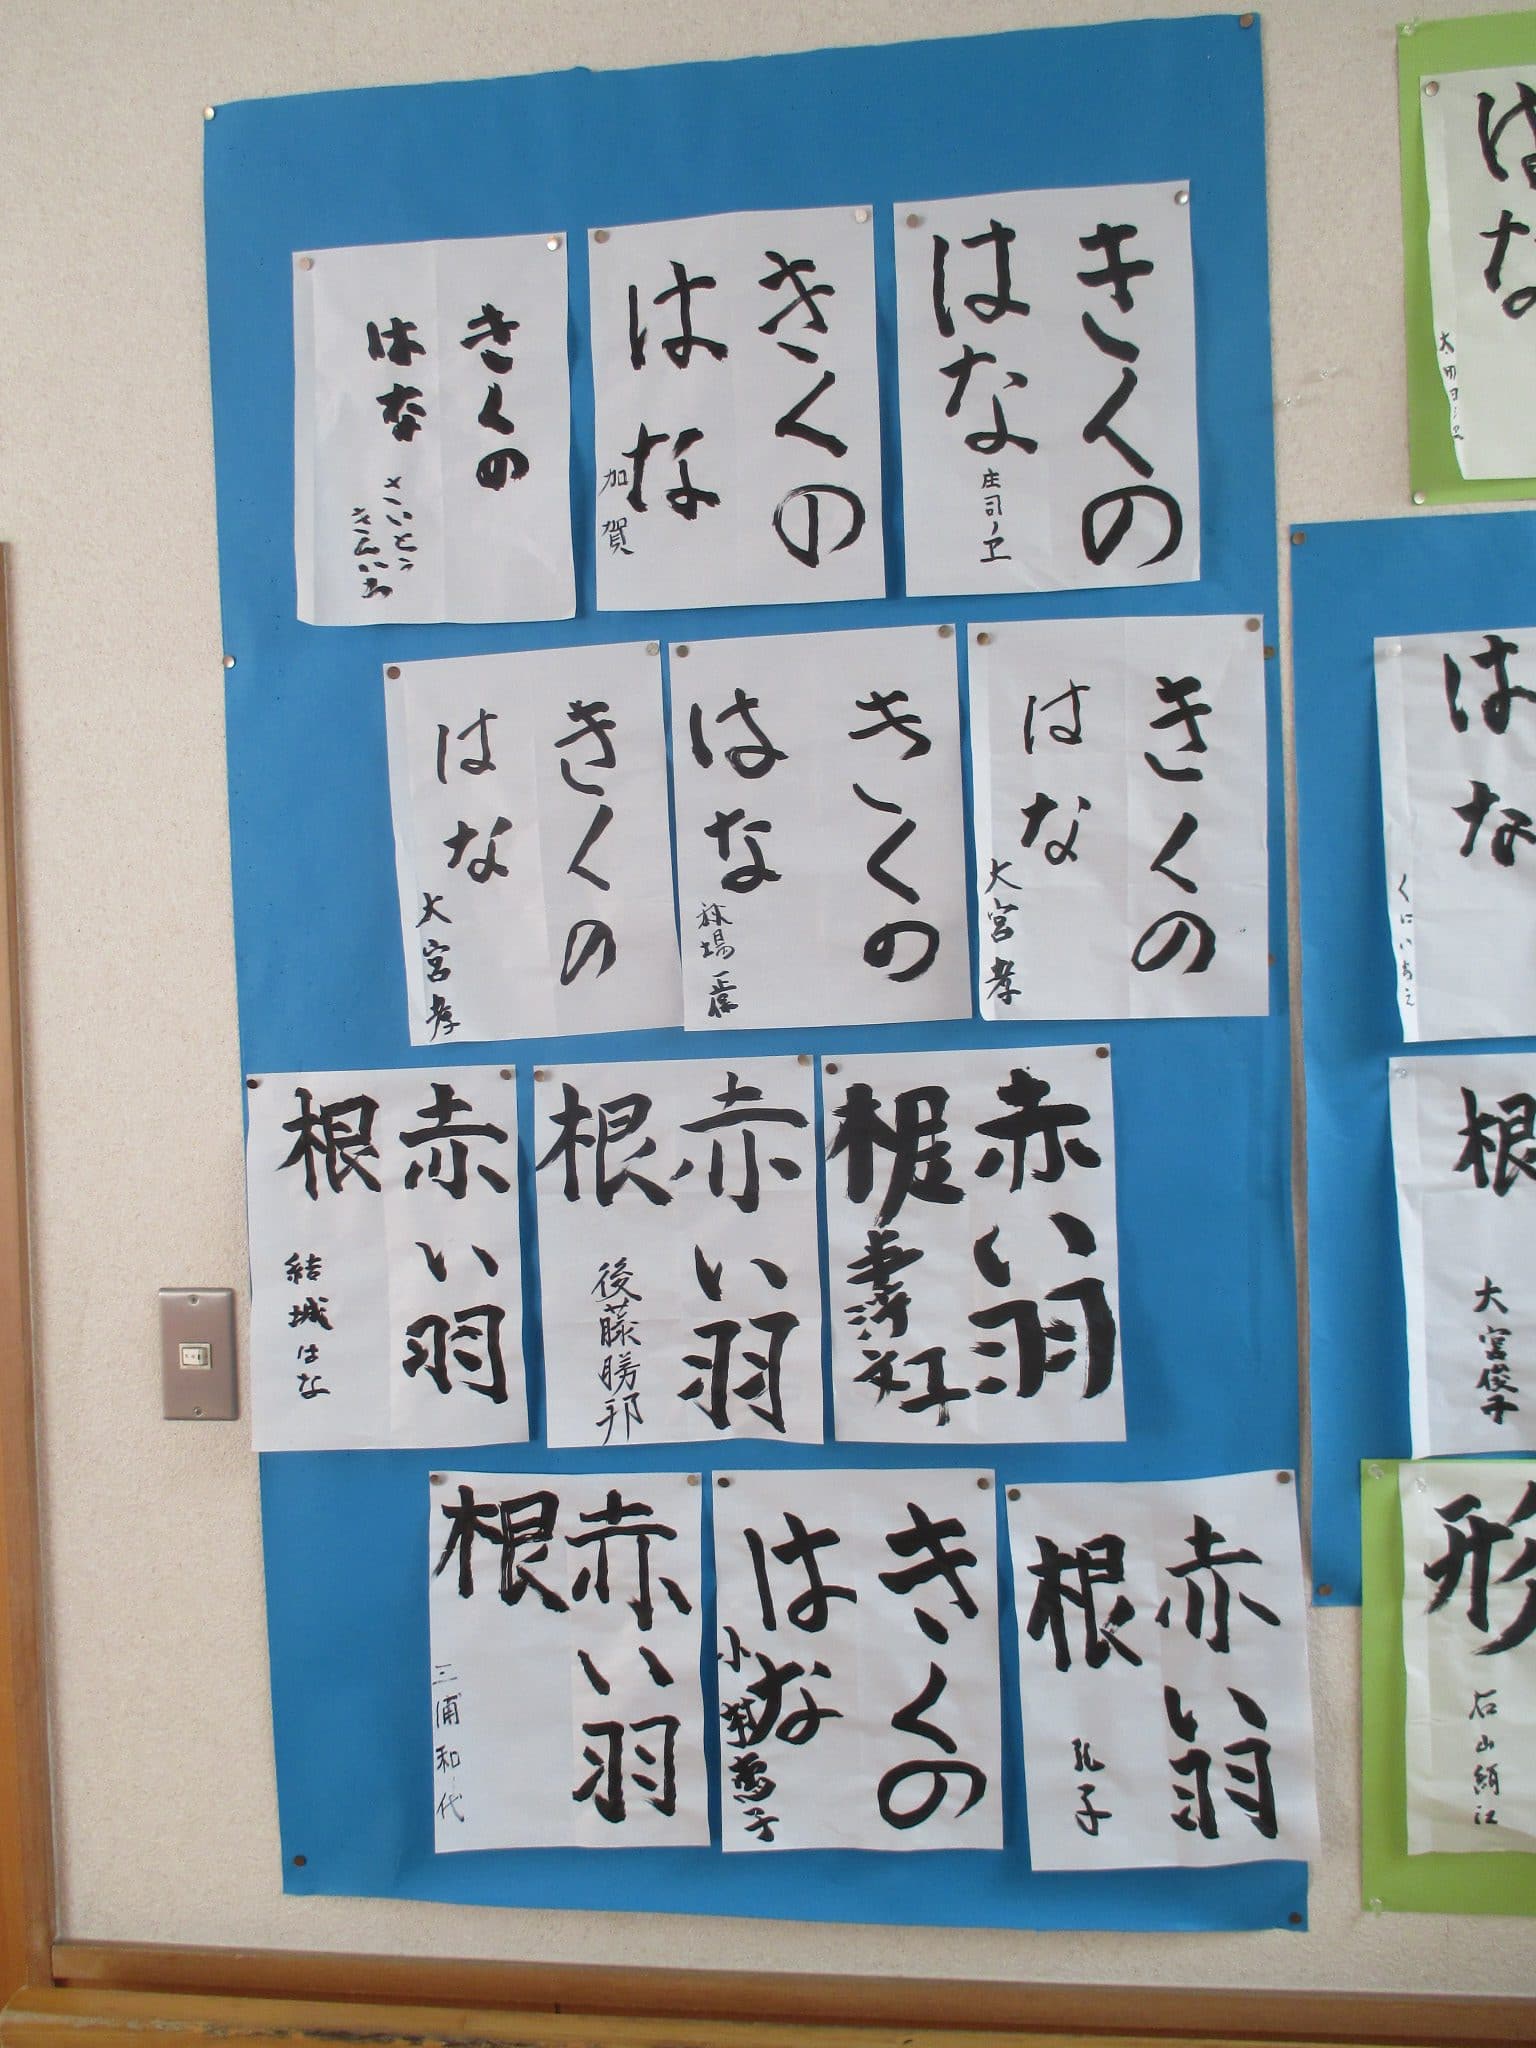 きくの
はな
庄司ノヱ
きくの
はな
加賀
きくの
はな
さいとう
きんいち
きくの
はな
大宮孝
きくの
はな
きくの
はな
大宮孝
赤い羽
根
赤い羽
根
後藤勝邦
赤い羽
根
結城はな
赤い羽
根
きくの
はな
赤い羽
根
三浦和代
はな
はな
くにいちえ
根
大宮俊子
形
石山絹江